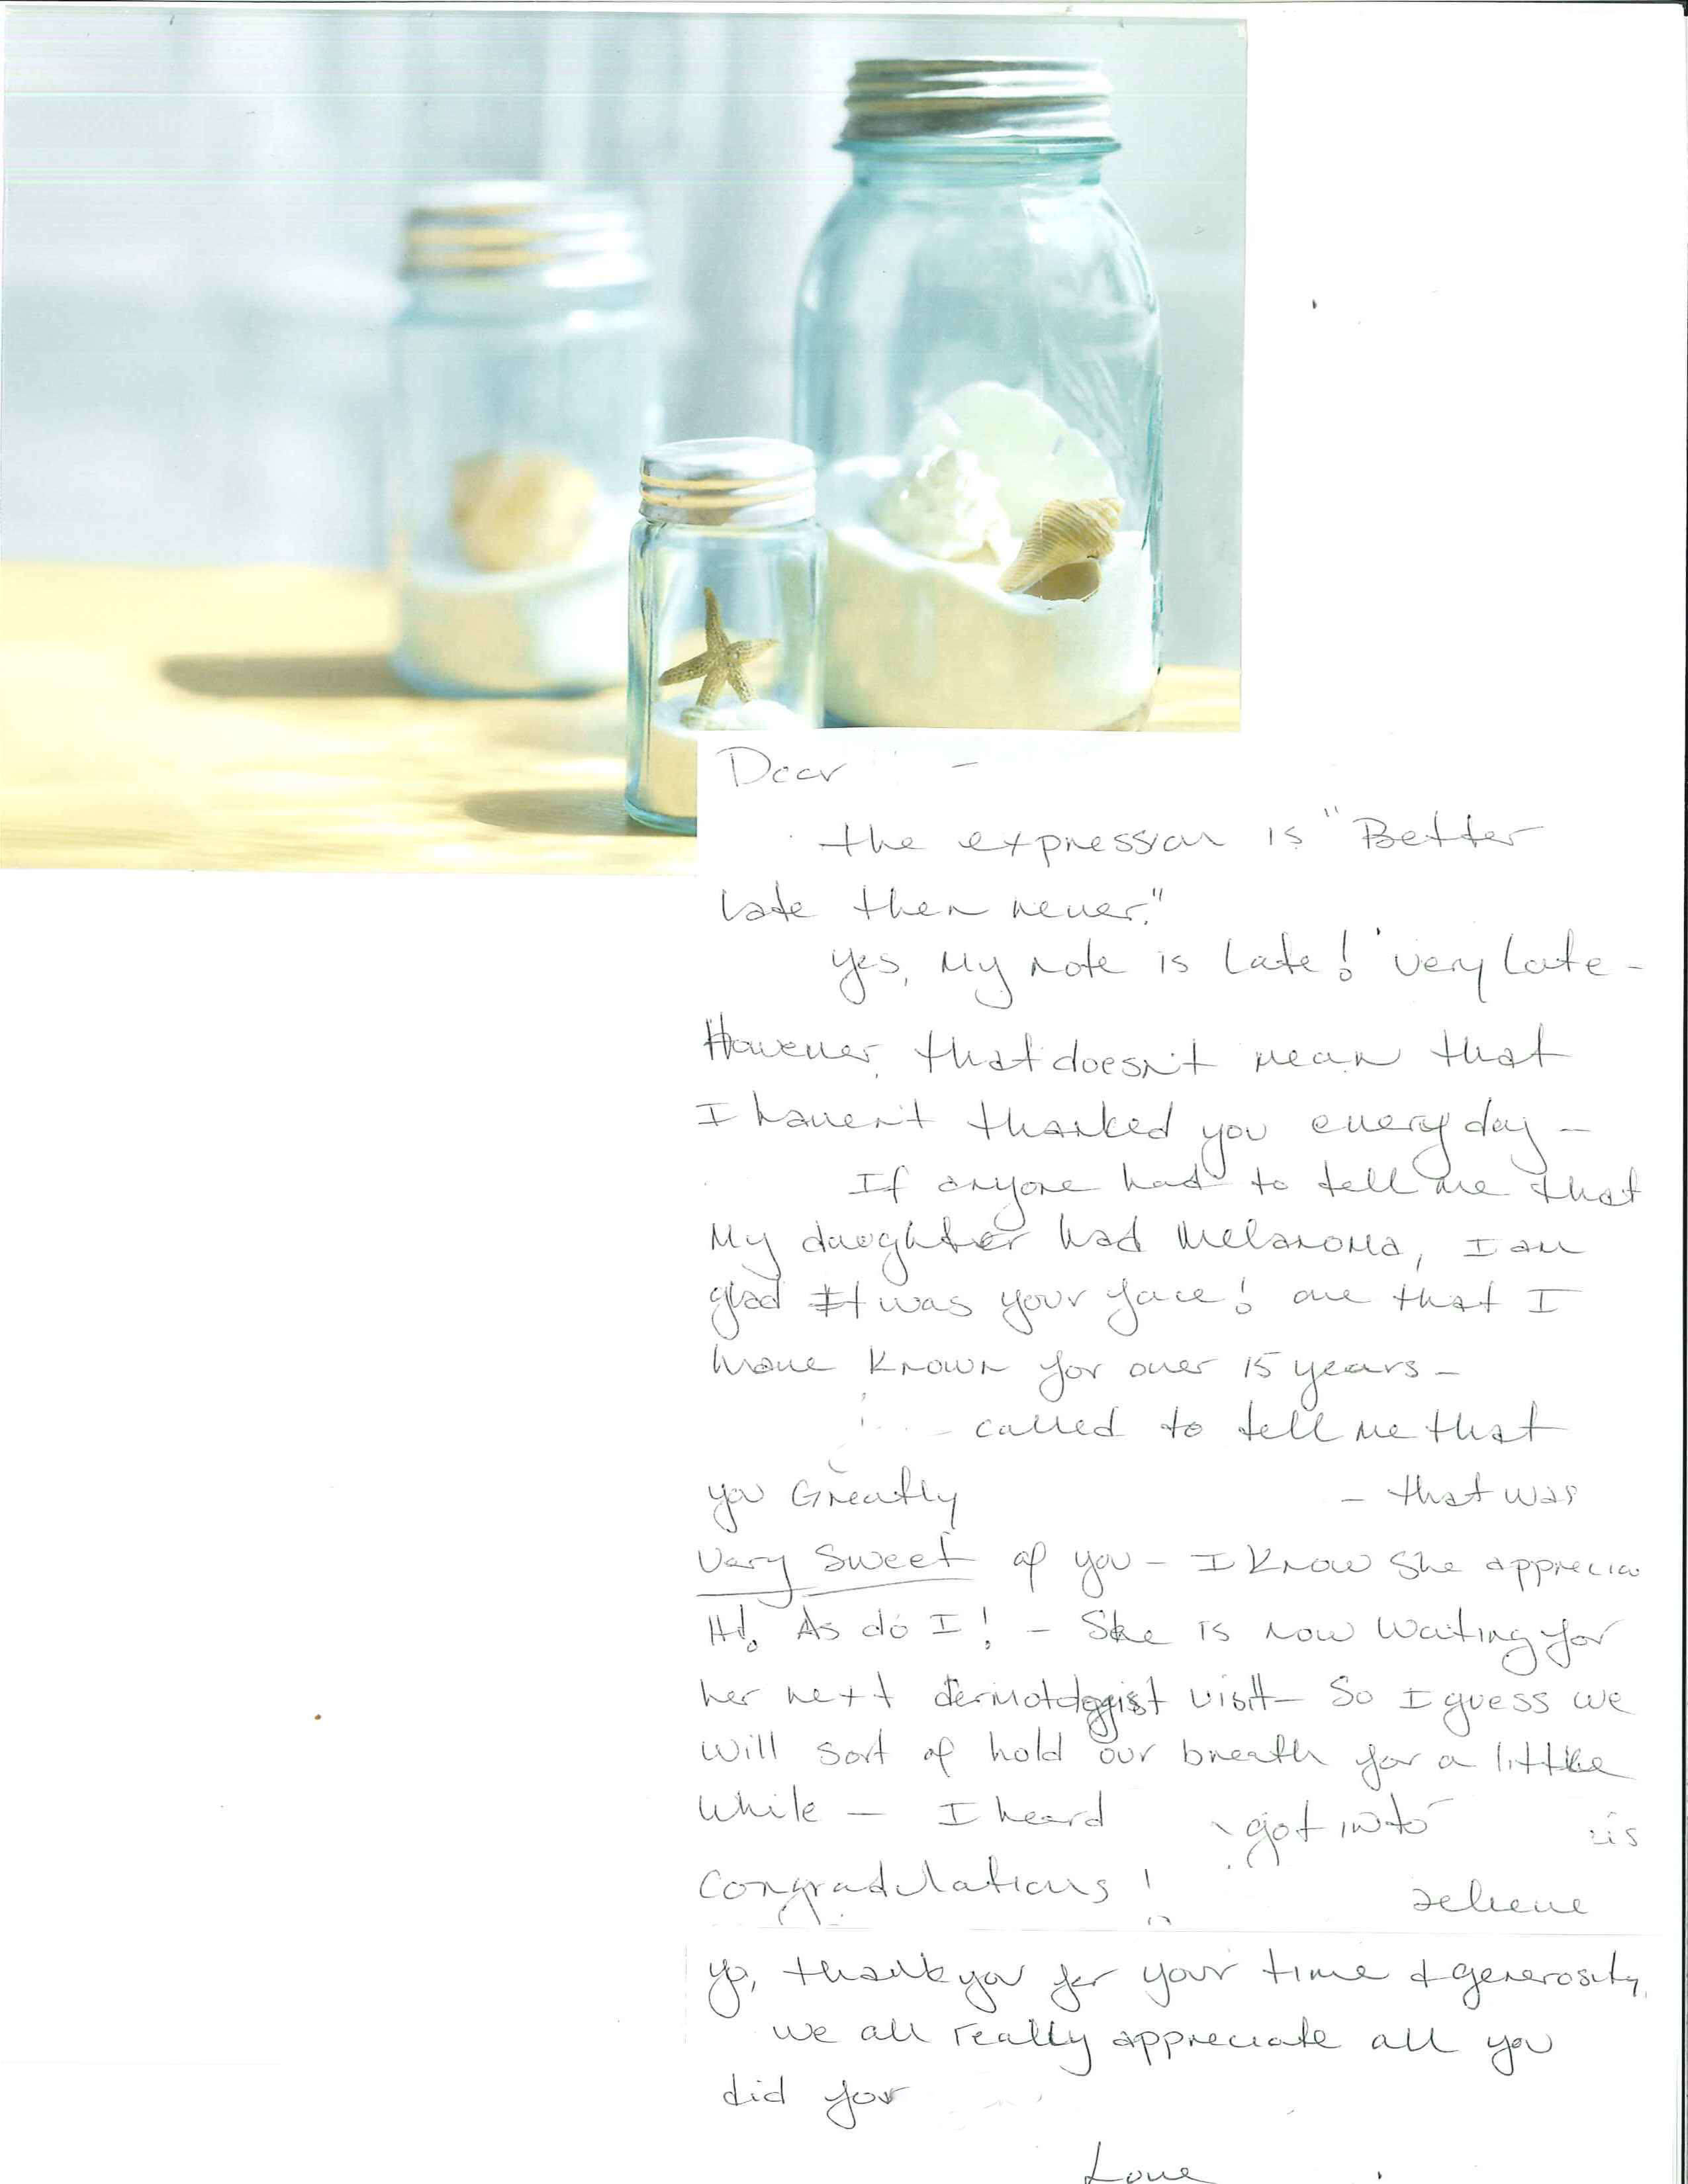 Dear –
the expression is "Better
late then never."
Yes, my note is late! very late –
However, that doesn't mean that
I haven't thanked you everyday –
If anyone had to tell me that
My daughter had Melanoma, I am
glad It was your face! one that I
have known for over 15 years –
– called to tell me that
you Greatly – that was
very sweet of you – I know she apprecia
it! As do I! – She is now waiting for
her next dermotologist visit – So I guess we
will sort of hold our breath for a little
while – I heard got into
Congradulations!
yo, thank you for your time & generosity,
we all really appreciate all you
did for
Love